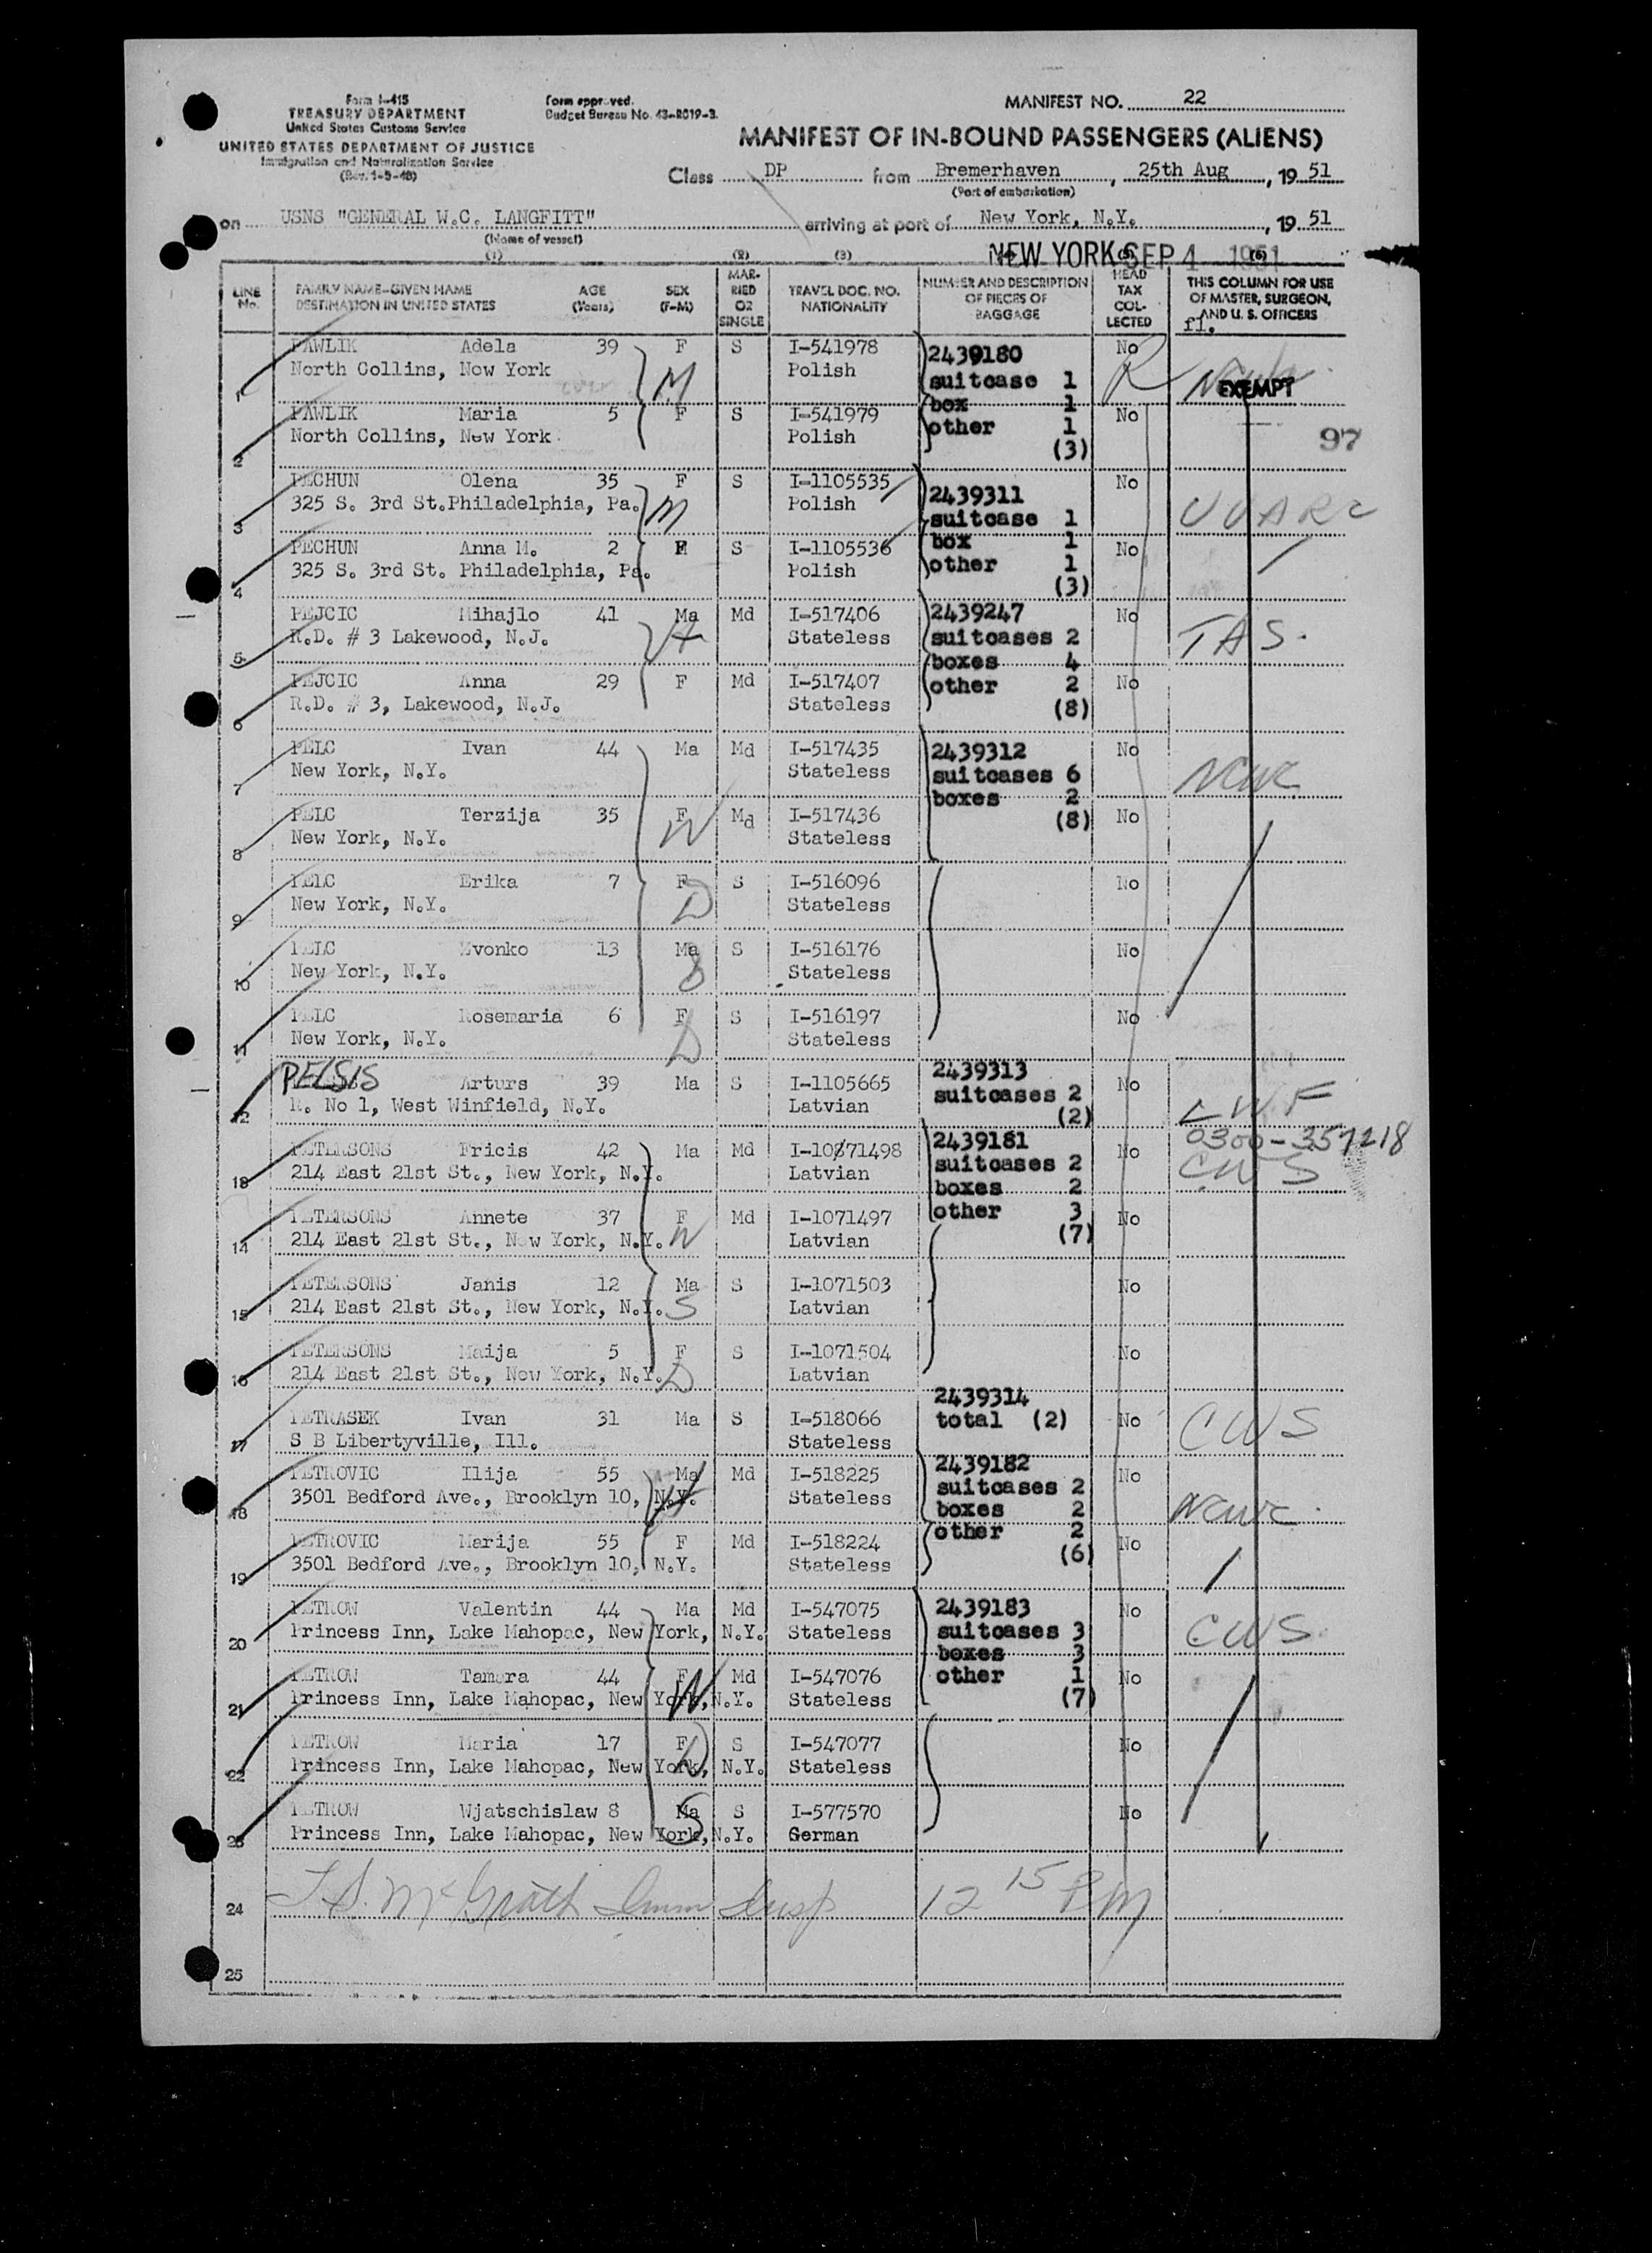 Form I-415
TREASURY DEPARTMENT
United States Customs Service
UNITED STATES DEPARTMENT OF JUSTICE
Immigration and Naturalization Service
(Rev. 1-5-48)
Form approved.
Budget Bureau No. 43-R019-3.
MANIFEST NO. 22
MANIFEST OF IN-BOUND PASSENGERS (ALIENS)
Class DP from Bremerhaven, 25th Aug, 19 51
(Port of embarkation)
on USNS "GENERAL W.C. LANGFITT" arriving at port of New York, N.Y., 19 51
(Name of vessel)
NEW YORK SEP 4 1951
(1) (2) (3) (5) (6)
LINE No. FAMILY NAME-GIVEN NAME DESTINATION IN UNITED STATES AGE (Years) SEX (F-M) MARRIED OR SINGLE TRAVEL DOC. NO. NATIONALITY NUMBER AND DESCRIPTION OF PIECES OF BAGGAGE HEAD TAX COLLECTED THIS COLUMN FOR USE OF MASTER, SURGEON, AND U. S. OFFICERS
fl.
PAWLIK Adela 39 F S I-541978 2439180 No
1 North Collins, New York M Polish suitcase 1 R EXEMPT
PAWLIK Maria 5 F S I-541979 box 1 No
2 North Collins, New York Polish other 1 97
(3)
PECHUN Olena 35 F S I-1105535 2439311 No
3 325 S. 3rd St.Philadelphia, Pa. M Polish suitcase 1 UUARC
PECHUN Anna M. 2 F S I-1105536 box 1 No
4 325 S. 3rd St. Philadelphia, Pa. Polish other 1
(3)
PEJCIC Mihajlo 41 Ma Md I-517406 2439247 No
5 R.D. # 3 Lakewood, N.J. H Stateless suitcases 2 TAS.
boxes 4
PEJCIC Anna 29 F Md I-517407 other 2 No
6 R.D. # 3, Lakewood, N.J. Stateless (8)
PELC Ivan 44 Ma Md I-517435 2439312 No
7 New York, N.Y. Stateless suitcases 6 NCWC
boxes 2
PELC Terzija 35 F Md I-517436 (8) No
8 New York, N.Y. W Stateless
PELC Erika 7 F S I-516096 No
9 New York, N.Y. D Stateless
PELC Zvonko 13 Ma S I-516176 No
10 New York, N.Y. S Stateless
PELC Rosemaria 6 F S I-516197 No
11 New York, N.Y. D Stateless
PELSIS Arturs 39 Ma S I-1105665 2439313 No
12 R. No 1, West Winfield, N.Y. Latvian suitcases 2 LWF
(2)
0300-357218
PETERSONS Fricis 42 Ma Md I-1071498 2439181 No
13 214 East 21st St., New York, N.Y. Latvian suitcases 2 CWS
boxes 2
PETERSONS Annete 37 F Md I-1071497 other 3 No
14 214 East 21st St., New York, N.Y. W Latvian (7)
PETERSONS Janis 12 Ma S I-1071503 No
15 214 East 21st St., New York, N.Y. S Latvian
PETERSONS Maija 5 F S I-1071504 No
16 214 East 21st St., New York, N.Y. D Latvian
2439314
PETRASEK Ivan 31 Ma S I-518066 total (2) No CWS
17 S B Libertyville, Ill. Stateless
PETROVIC Ilija 55 Ma Md I-518225 2439182 No
18 3501 Bedford Ave., Brooklyn 10, N.Y. H Stateless suitcases 2 NCWC
boxes 2
PETROVIC Marija 55 F Md I-518224 other 2 No
19 3501 Bedford Ave., Brooklyn 10, N.Y. Stateless (6)
PETROW Valentin 44 Ma Md I-547075 2439183 No
20 Princess Inn, Lake Mahopac, New York, N.Y. Stateless suitcases 3 CWS
boxes 3
PETROW Tamara 44 F Md I-547076 other 1 No
21 Princess Inn, Lake Mahopac, New York, N.Y. W Stateless (7)
PETROW Maria 17 F S I-547077 No
22 Princess Inn, Lake Mahopac, New York, N.Y. D Stateless
PETROW Wjatschislaw 8 Ma S I-577570 No
23 Princess Inn, Lake Mahopac, New York, N.Y. S German
24 T.S. McGrath Imm Insp 12 15 PM
25